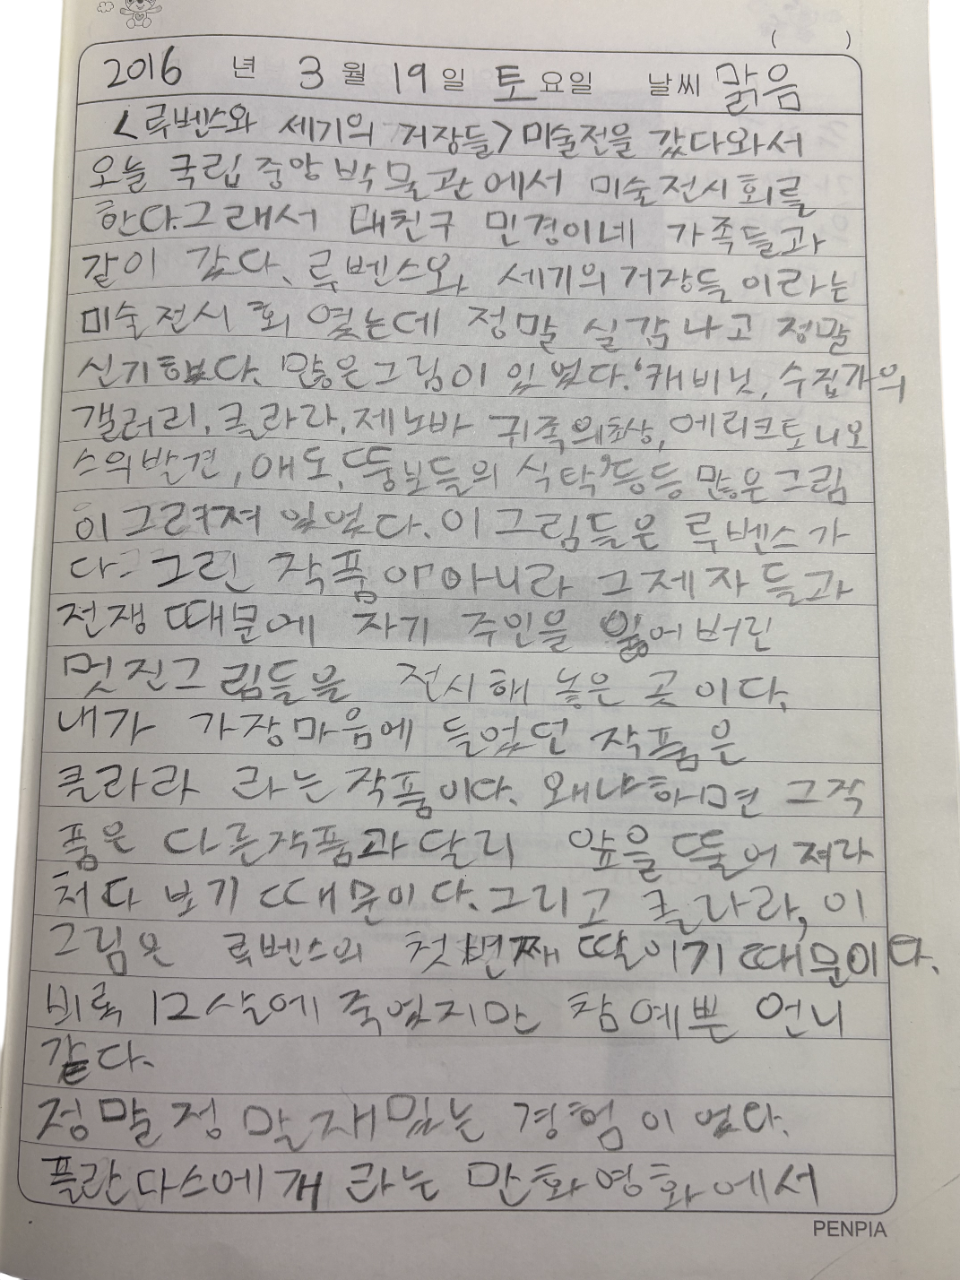 ( )
2016 년 3 월 19 일 토 요일 날씨 맑음
<루벤스와 세기의 거장들> 미술전을 갔다와서
오늘 국립 중앙 박물관에서 미술전시회를
한다.그래서 내친구 민경이네 가족들과
같이 갔다. 루벤스와 세기의 거장들 이라는
미술 전시 회 였는데 정말 실감 나고 정말
신기했다. 많은그림이 있었다.'캐비닛, 수집가의
갤러리, 클라라, 제노바 귀족의초상, 에리크토니오
스의발견, 애도, 뚱보들의 식탁'등등 많은그림
이그려져 있었다. 이그림들은 루벤스가
다 그린 작품이 아니라 그제자들과
전쟁 때문에 자기 주인을 잃어버린
멋진그림들을 전시해 놓은 곳이다.
내가 가장마음에 들었던 작품은
클라라 라는 작품이다. 왜냐하면 그작
품은 다른작품과 달리 앞을 뚫어 져라
처다 보기 때문이다.그리고 클라라, 이
그림은 루벤스의 첫번째 딸이기 때문이다.
비록 12살에 죽었지만 참예쁜 언니
같다.
정말정말재밌는 경험이였다.
플란다스에개 라는 만화영화에서
PENPIA